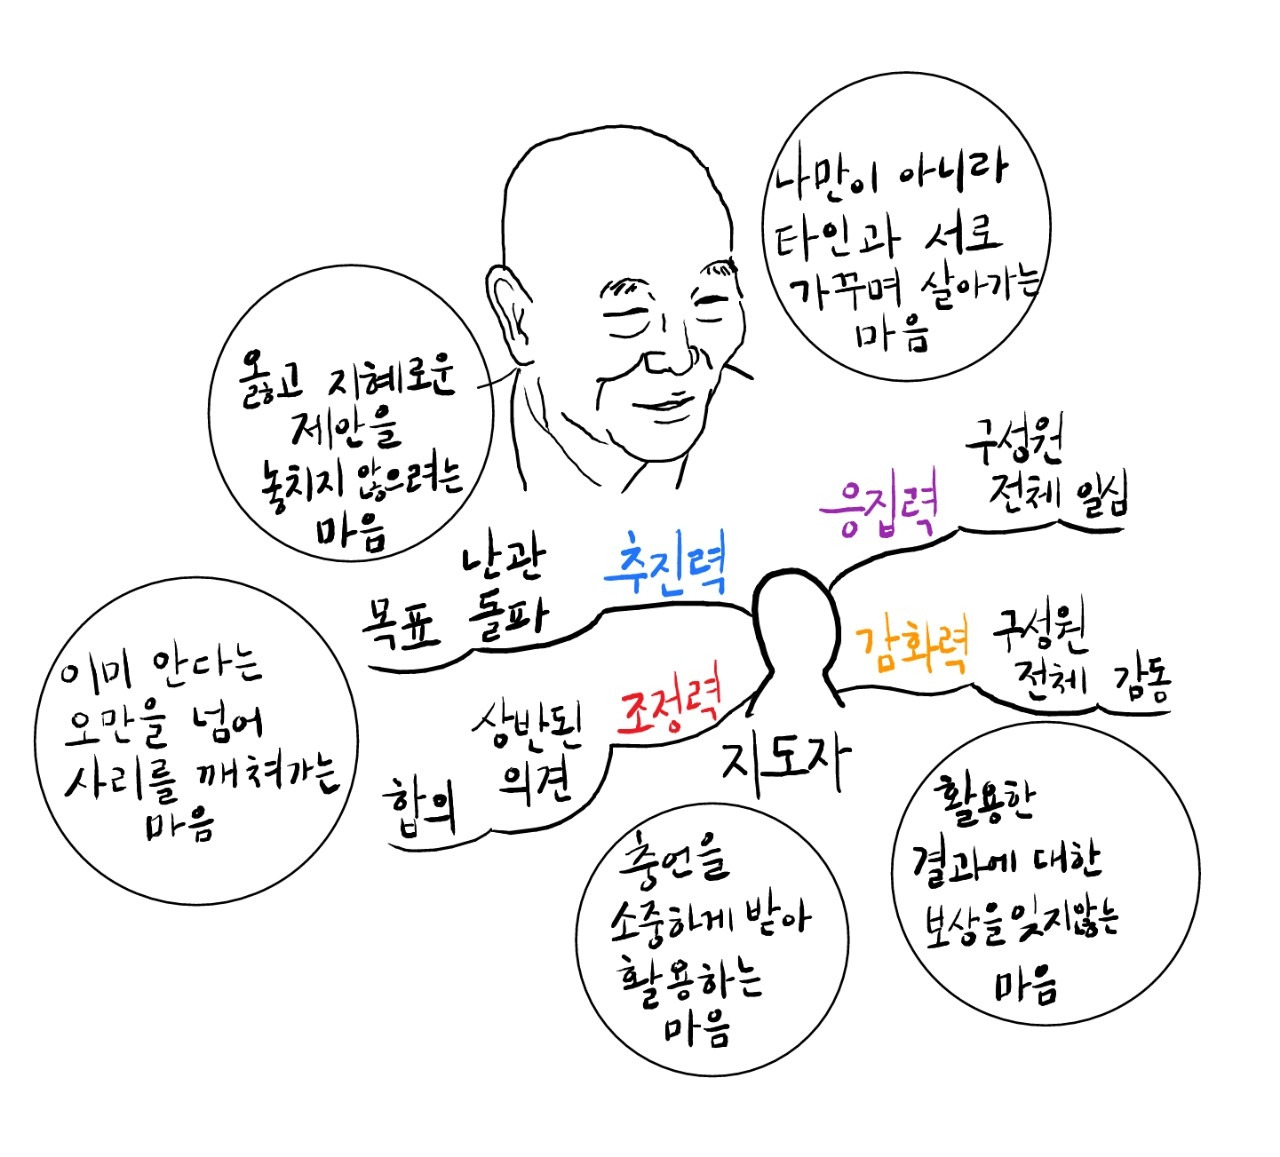 나만이 아니라
타인과 서로
가꾸며 살아가는
마음
옳고 지혜로운
제안을
놓치지 않으려는
마음
이미 안다는
오만을 넘어
사리를 깨쳐가는
마음
추진력
난관
돌파
목표
응집력
구성원
전체 일심
조정력
상반된
의견
합의
감화력
구성원
전체 감동
지도자
충언을
소중하게 받아
활용하는
마음
활용한
결과에 대한
보상을 잊지않는
마음